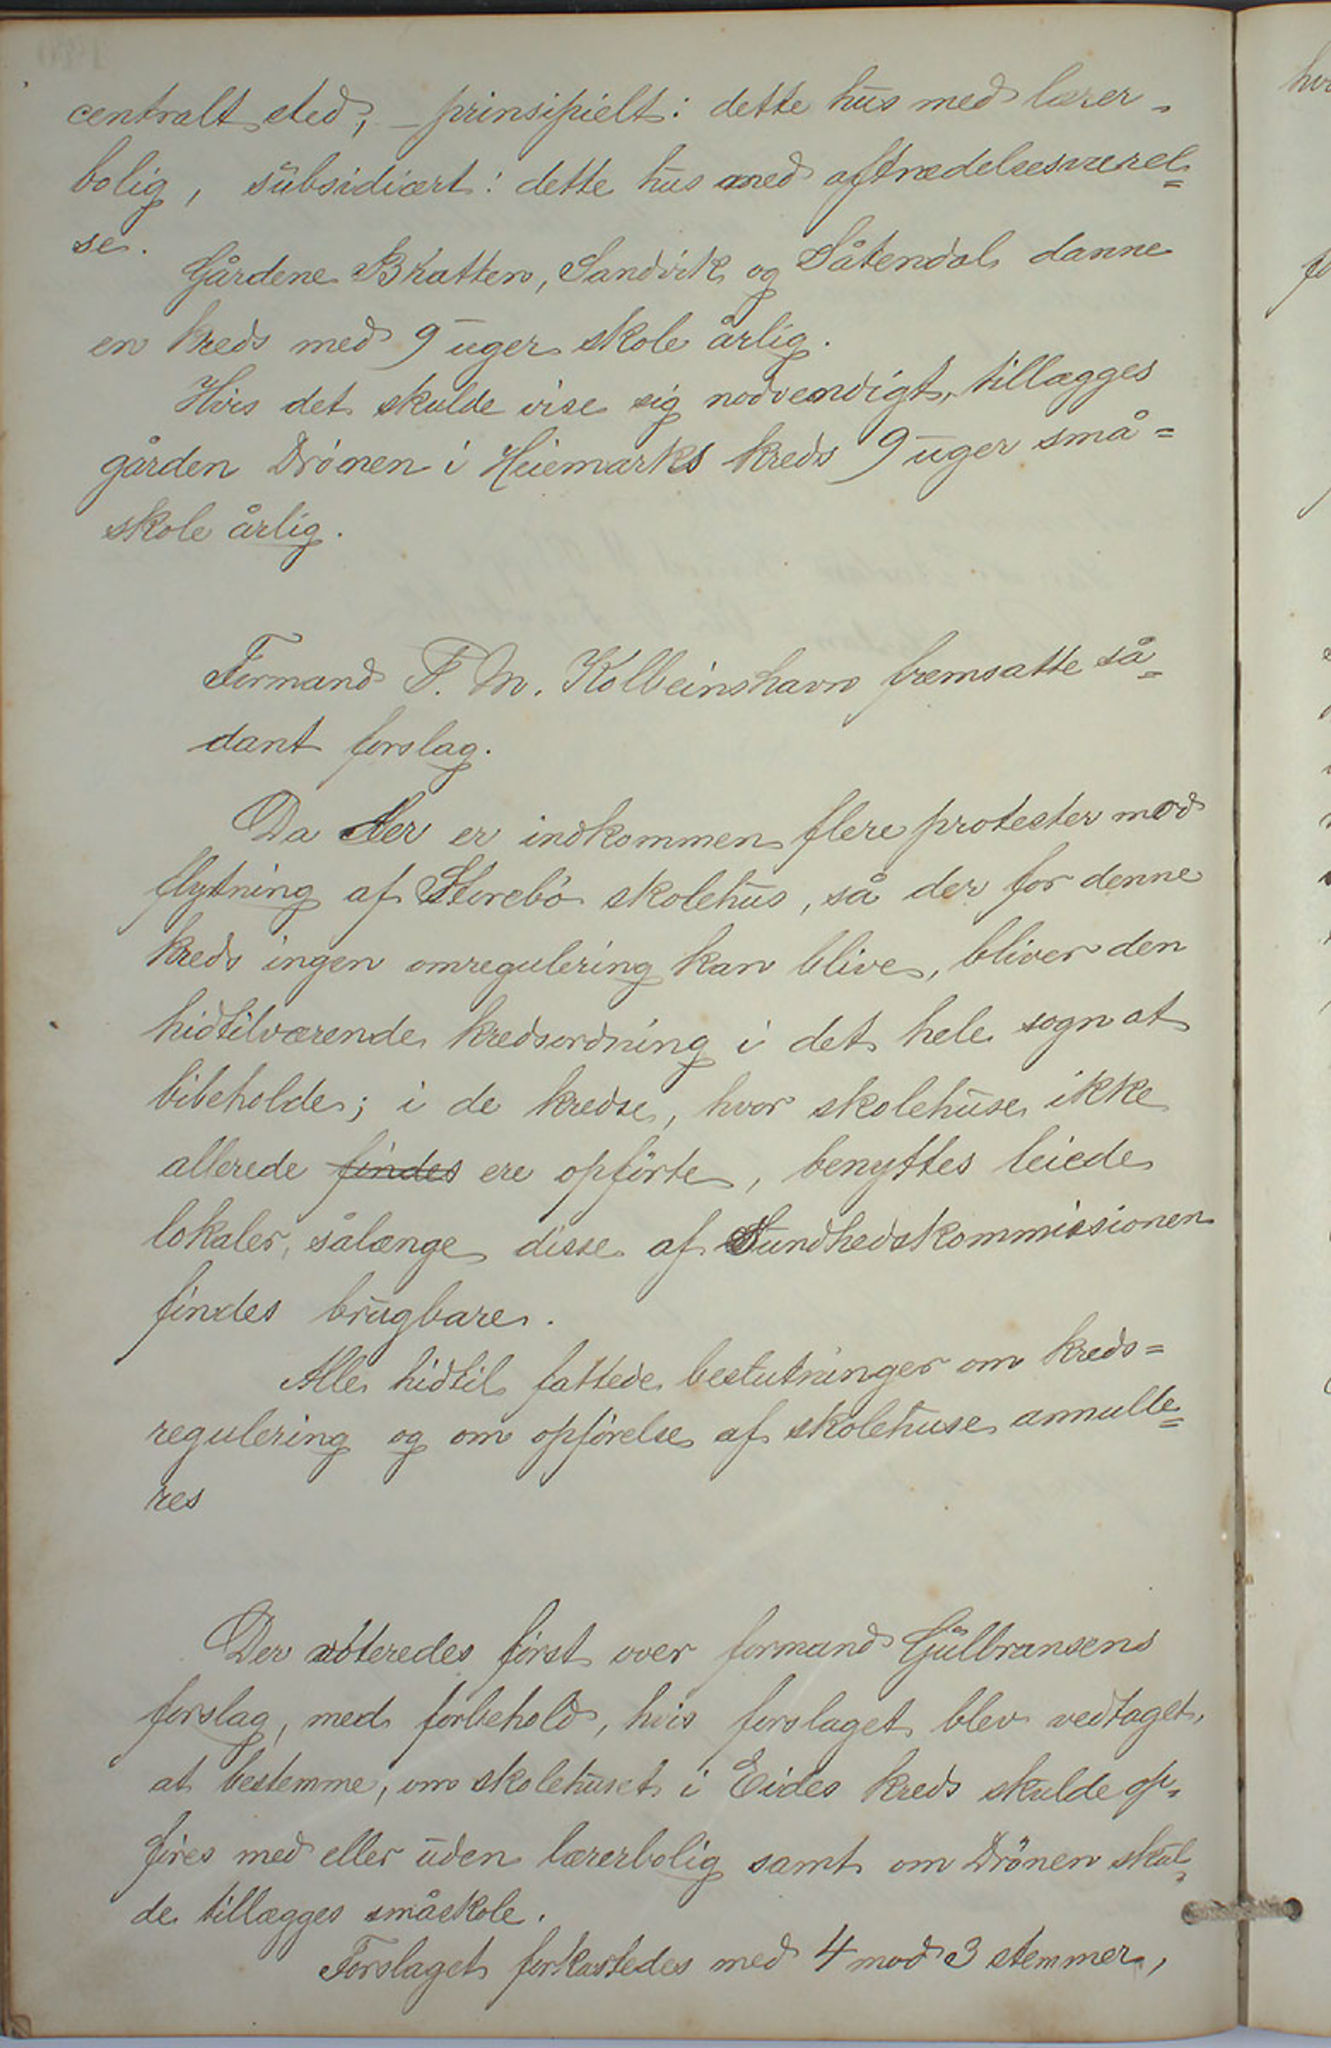 centralt sted, – prinsipielt: dette hus med lærer-
bolig, subsidiært: dette hus med aftrædelsesværel=
se.
Gårdene Bratten, Sandvik og Såtendal danne
en kreds med 9 uger skole årlig.
Hvis det skulde vise sig nødvendigt, tillægges
gården Drönen i Huemarks kreds 9 uger små=
skole årlig.
Formand F. M. Kolbeinshavn fremsatte så=
dant forslag.
Da der er indkommen flere protester mod
flytning af Storebö skolehus, så der for denne
kreds ingen omregulering kan blive, bliver den
hidtilværende kredsordning i det hele sogn at
bibeholde; i de kredse, hvor skolehuse ikke
allerede findes ere opförte, benyttes leiede
lokaler, sålænge disse af Sundhedskommissionen
findes brugbare.
Alle hidtil fattede beslutninger om kreds=
regulering og om opförelse af skolehuse annulle=
res
Der voteredes först over formand Gulbransens
forslag, med forbehold, hvis forslaget blev vedtaget,
at bestemme, om skolehuset i Eides kreds skulde op-
föres med eller uden lærerbolig samt om Drönen skul-
de tillægges småskole.
Forslaget forkastedes med 4 mod 3 stemmer,